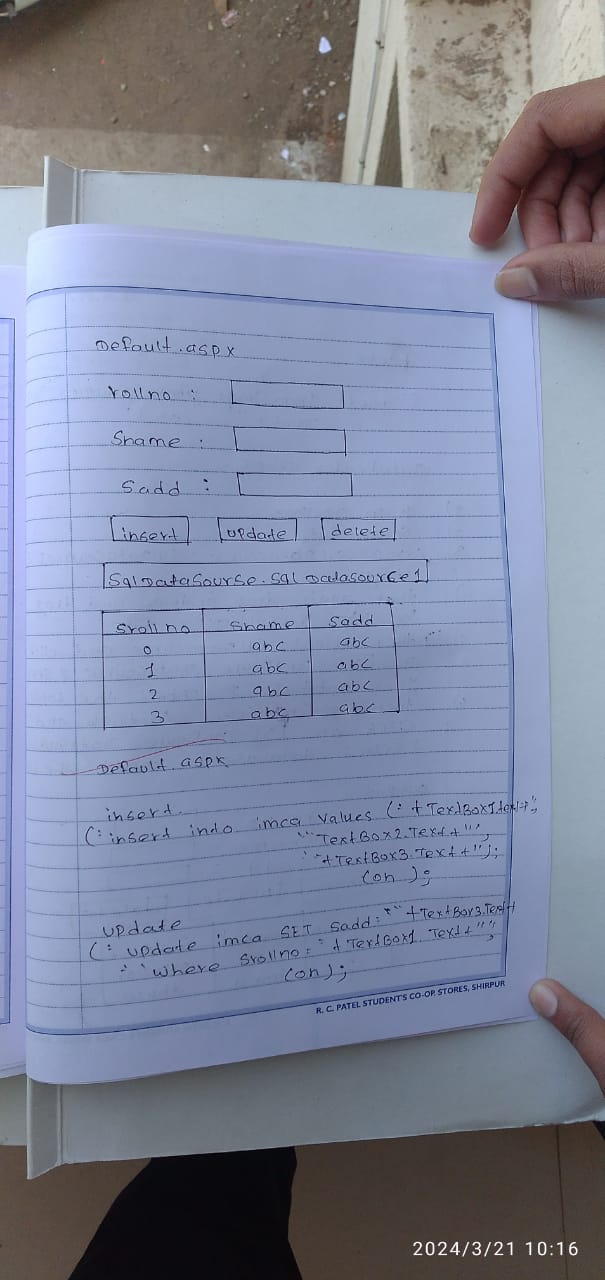 Default.aspx
rollno :
Sname :
Sadd :
insert update delete
SqlDataSourse.sqlDatasource1
Srollno Sname Sadd
0 abc abc
1 abc abc
2 abc abc
3 abc abc
Default.aspx
insert.
(: insert indo imca values (: + TextBox1.text+";
"TextBox2.Text+"',
'+TextBox3.Text+");
con );
update
(: update imca SET Sadd: "+TextBox3.Text+
"where Srollno = '+TextBox1.Text+"";
con);
R. C. PATEL STUDENT'S CO-OP. STORES, SHIRPUR
2024/3/21 10:16